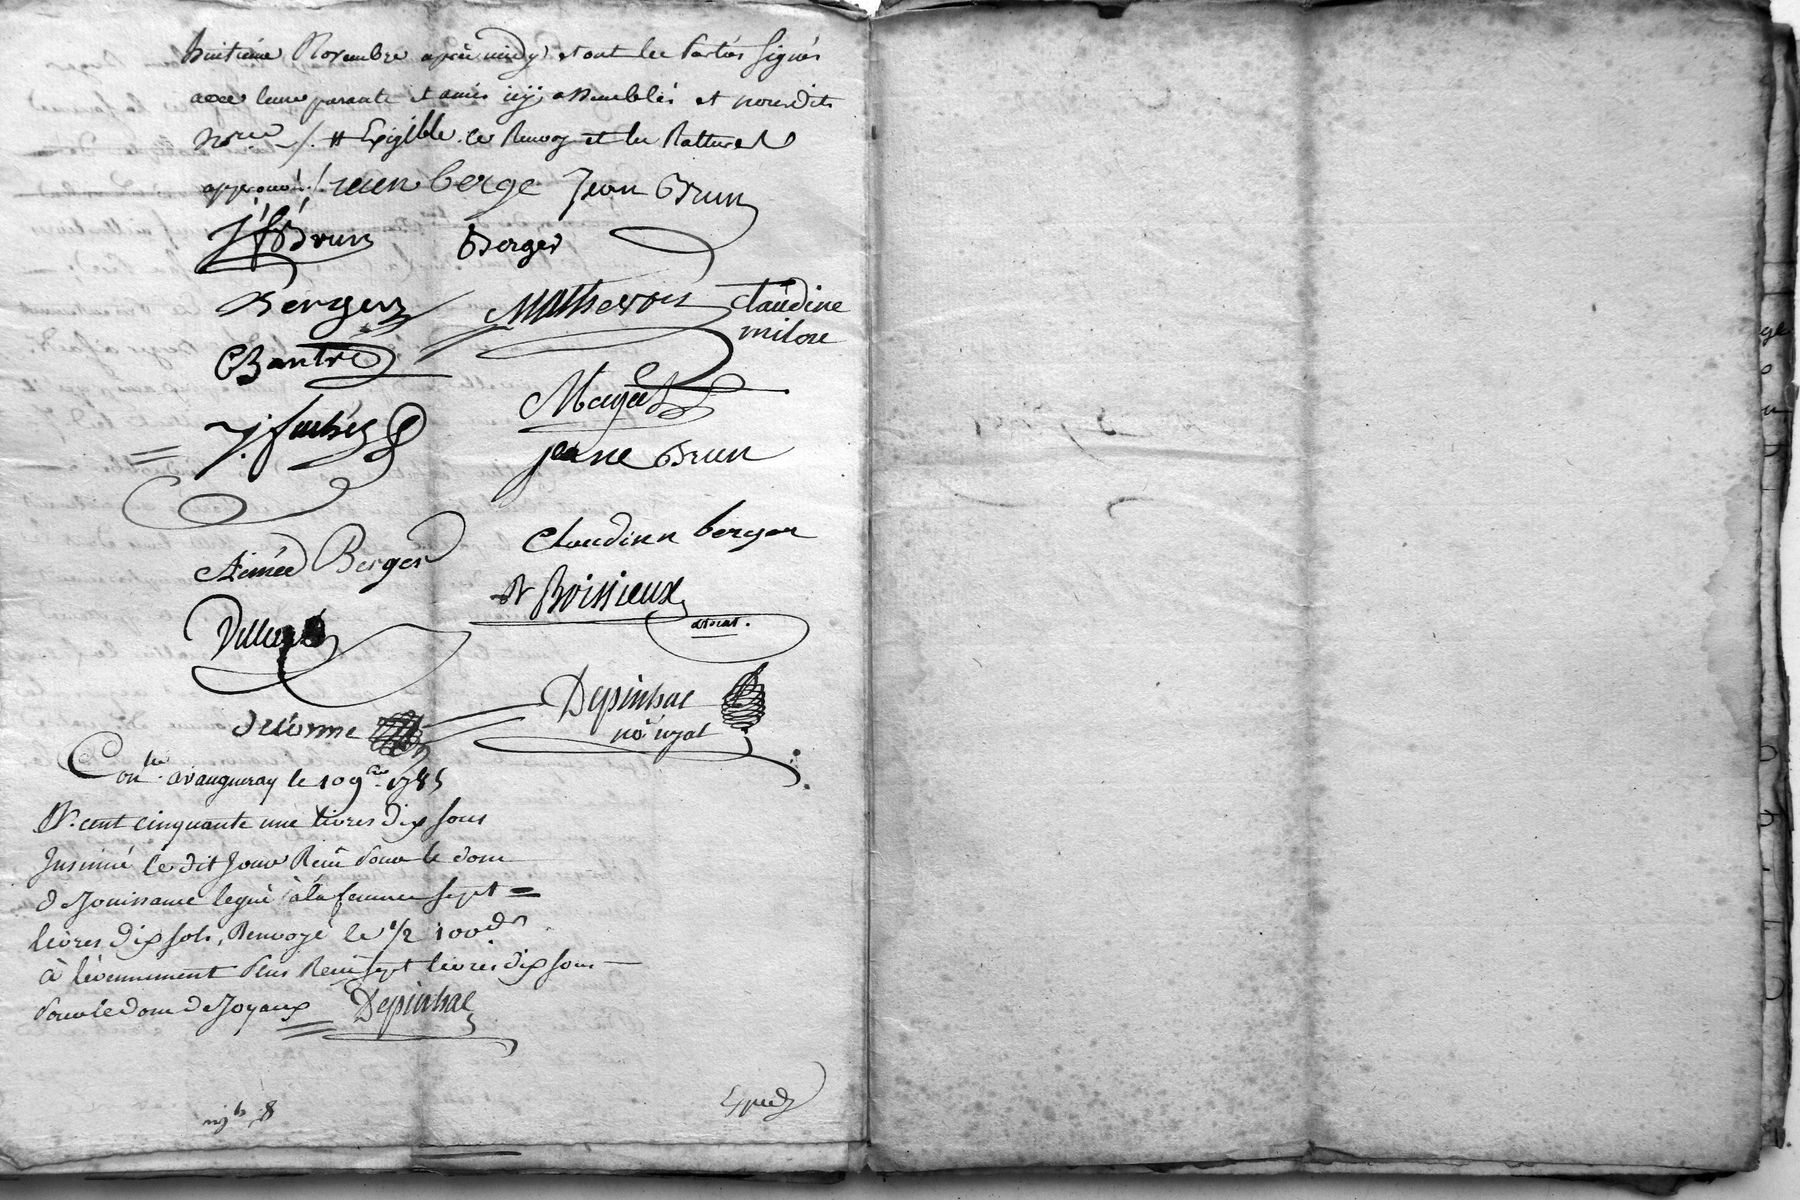 huitieme Novembre après midy et ont les Parties signés
avec leurs parants et amis icy assemblés et nousdits
Nores ./. # Exigible. ce Renvoy et les Ratturés
approuvés ./. berge Jean Brun
j. f. Brun Berger
Berger Mathevon Claudine
milore
Chantre
Magat
j. fuchez
jeane Brun
Claudinn berger
Aimée Berger
Dr Boissieux
avocat.
Depinhac
Delorme
no. royal
Conlle. a vaugneray le 10 9bre 1785
R. cent cinquante une livres dix sous
Insinué le dit Jour Reçu Pour le don
de Jouissance legué à la femme sept =
livres dix sols, Renvoyé le 1/2 100e dr
à l'evennement Plus Reçu sept livres dix sous
Pour le don de Joyaux Depinhac
Exped